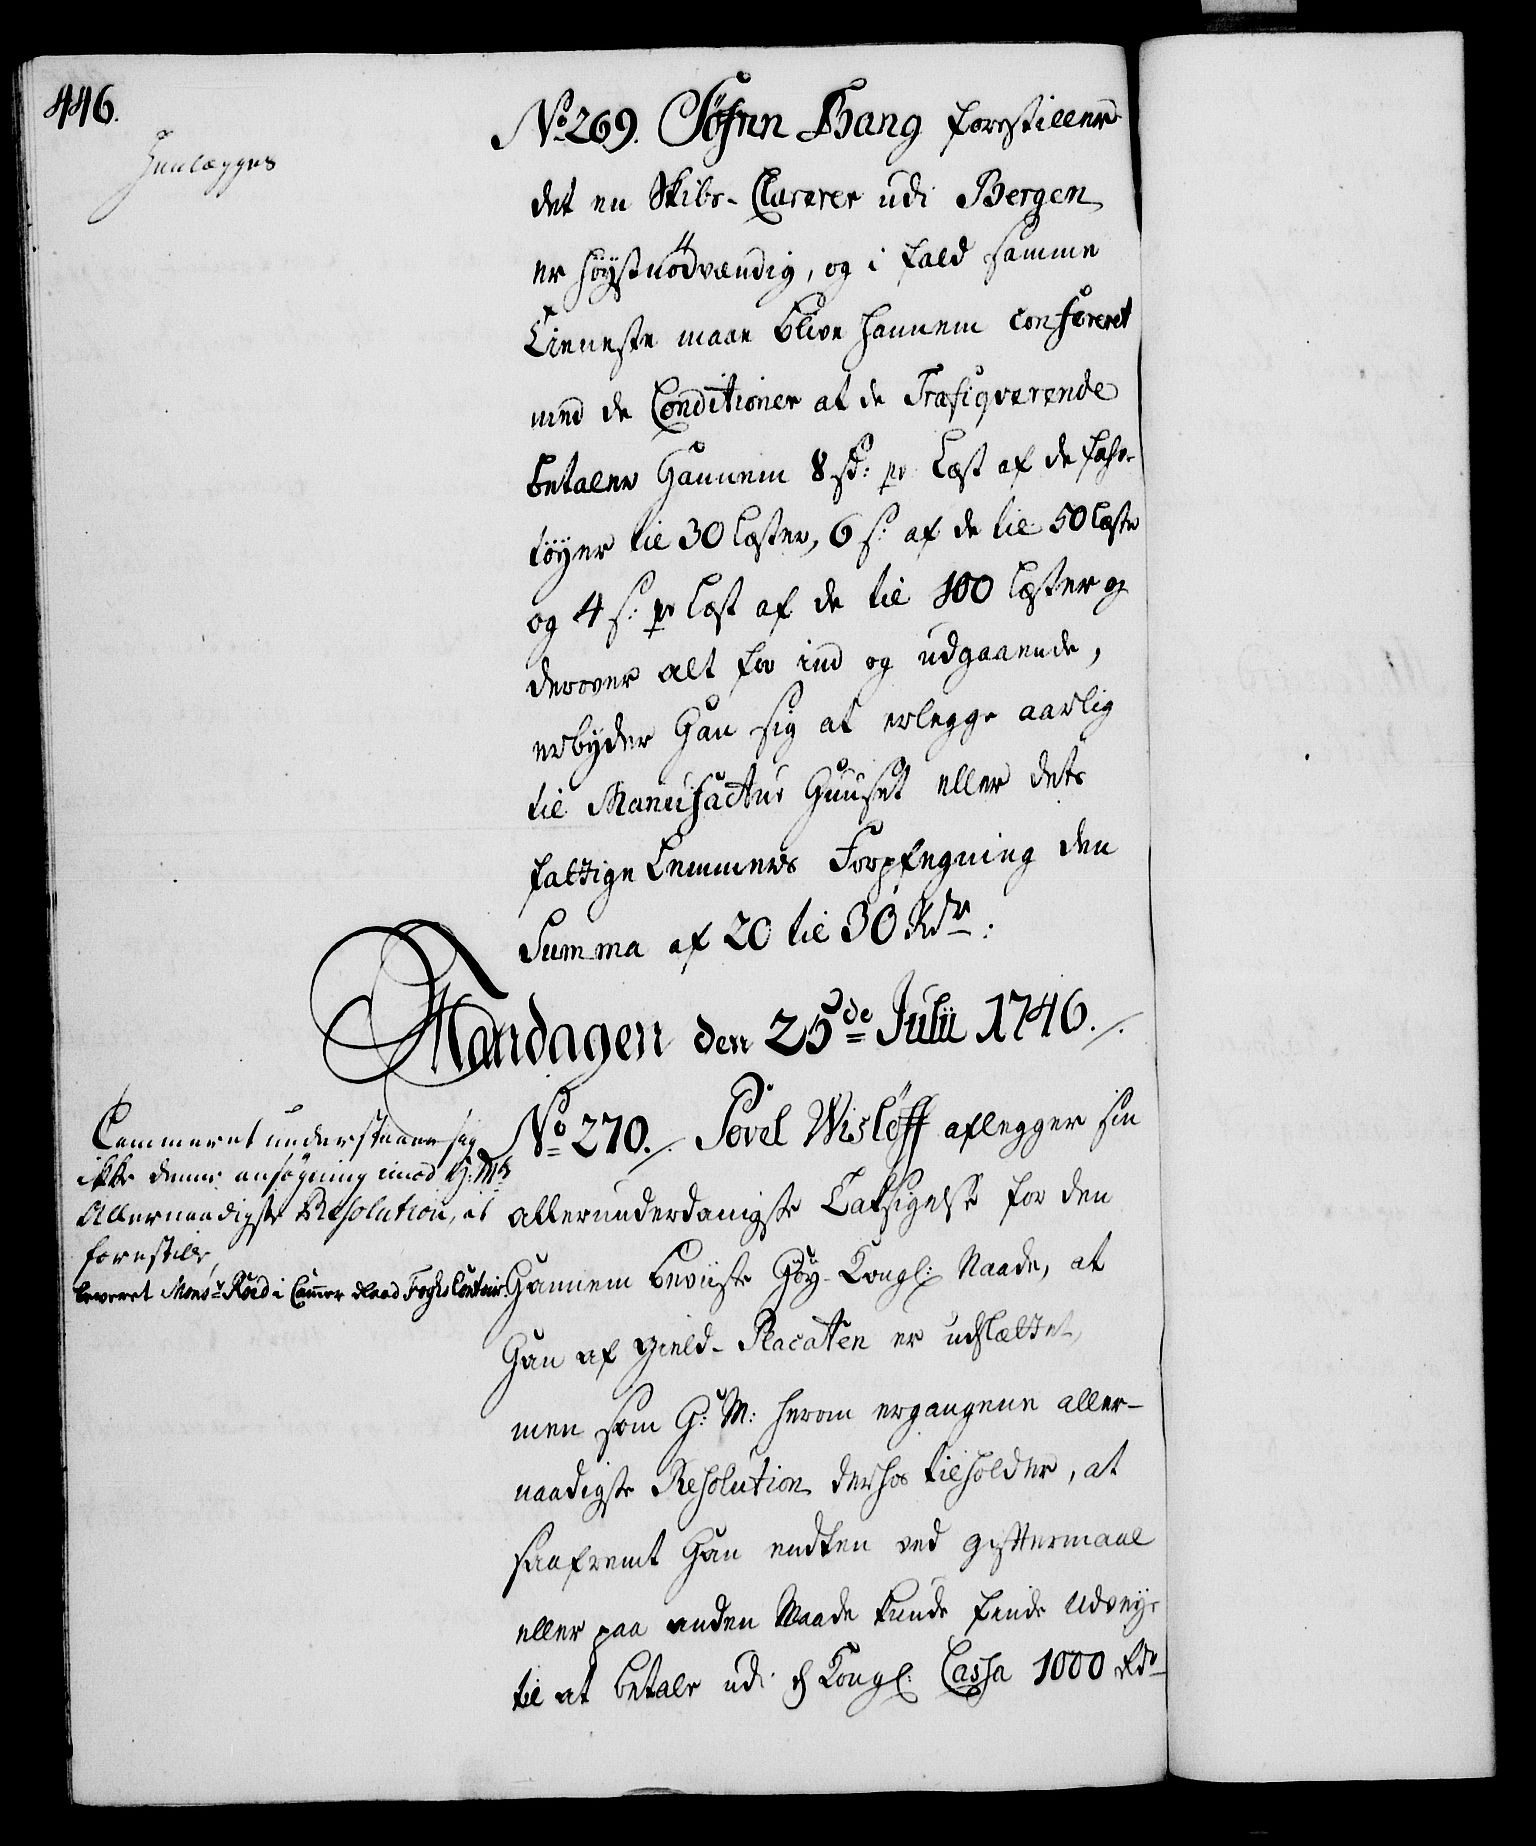 446.
Henlægges
No 269. Søfren Bang forestiller
det en Skibs-Clarerer udi Bergen
er høystnødvendig, og i fald samme
Tieneste maae blive hannem confereret
med de Conditioner at de Trafiqverende
betaler Hannem 8 sk: pr Læst af de fahr-
tøyer til 30 Læster, 6 s: af de til 50 Læster
og 4 s: pr Læst af de til 100 Læster og
derover alt for ind og udgaaende,
erbyder Han sig at erlegge aarlig
til Manufactur Huuset eller dets
fattige Lemmers Forplegning den
Summa af 20 til 30 Rdr:
Mandagen den 25de Julii 1746.
Cammeret understaaer sig
ikke denne ansøgning imod H: Mts
Allernaadigste Resolution, at
forestille,
leveret Monsr Roed i Cammer Raad Fochs Contoir.
No 270. Povel Wisløff aflegger sin
allerunderdanigste Taksigelse for den
Hannem beviiste Høy-Kongl: Naade, at
Han af Gield-Placaten er udslættet,
men som H: M: herom ergangene aller-
naadigste Resolution derhos tilholder, at
saafremt Han endten ved gifttermaal
eller paa anden Maade kunde finde Udvey
til at betale udi d Kongl: Cassa 1000 Rdr